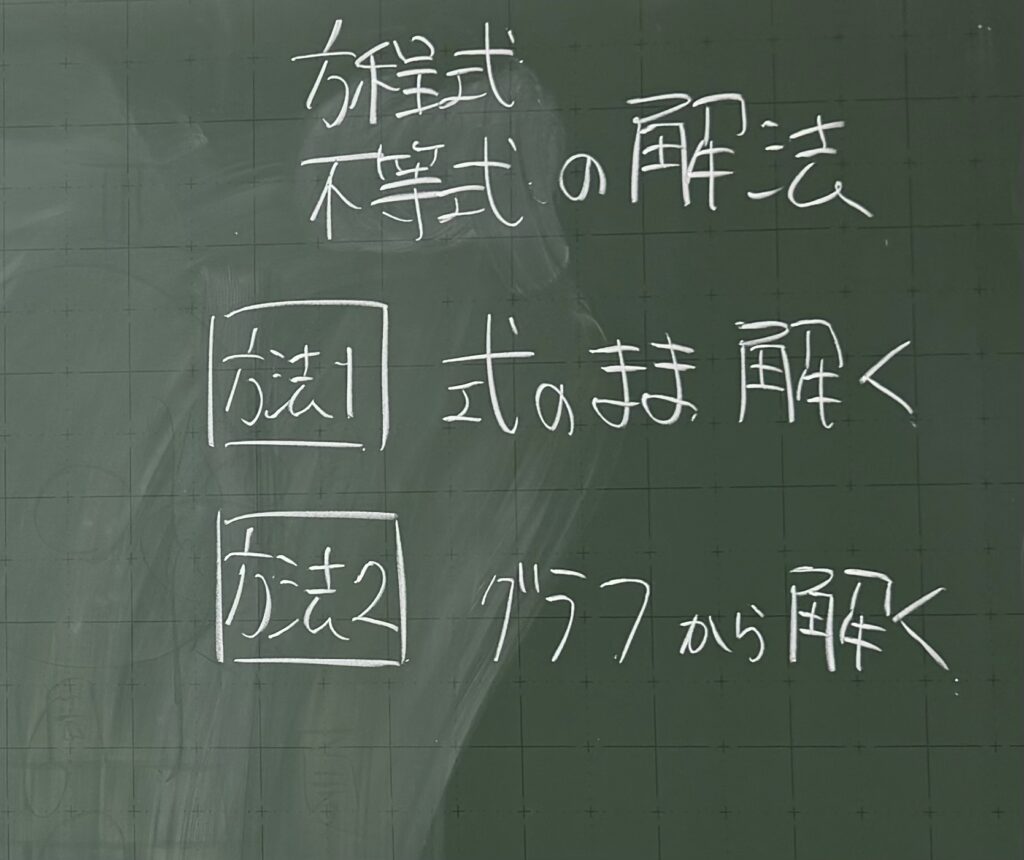 方程式
不等式の解法
方法1 式のまま解く
方法2 グラフから解く